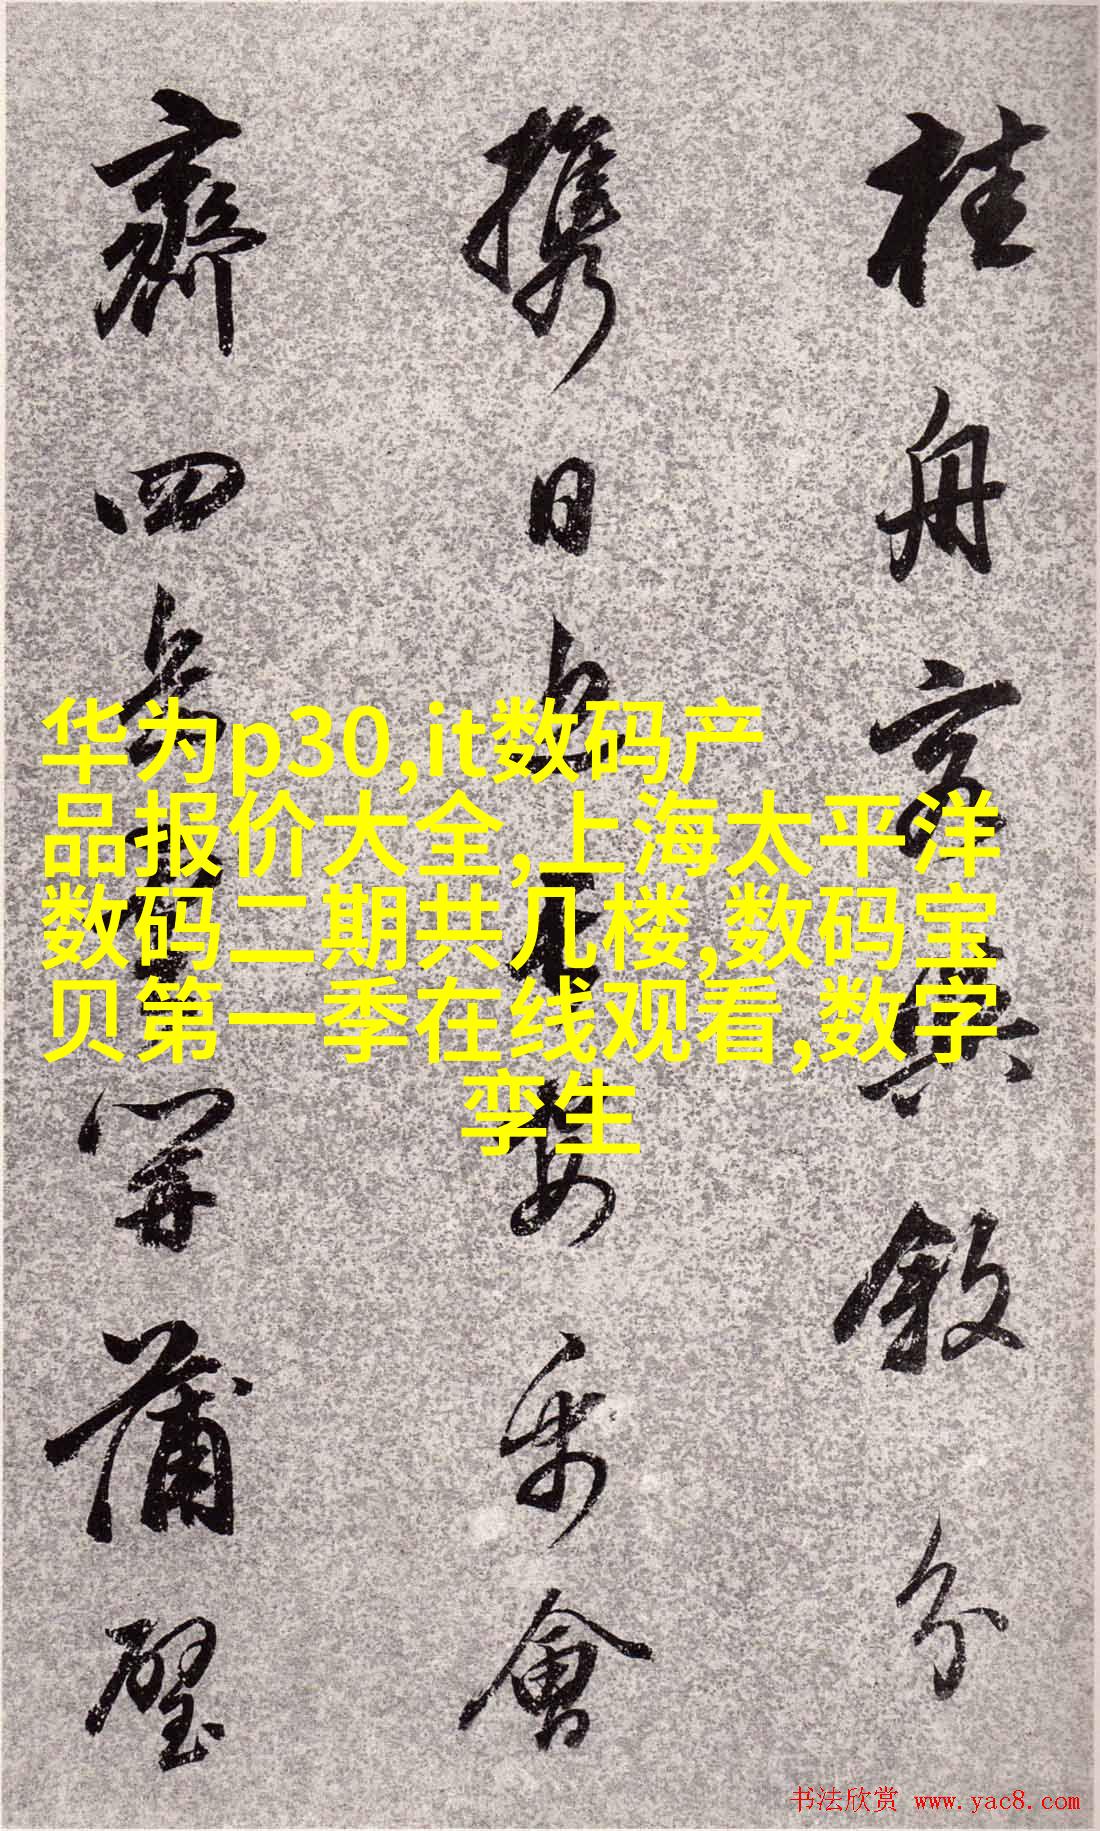 桂舟
兴叙分
携日
乐会
齐四
开蒲璧
华为p30,it数码产
品报价大全,上海太平洋
数码二期共几楼,数码宝
贝第一季在线观看,数字
孪生
书法欣赏 www.yac8.com